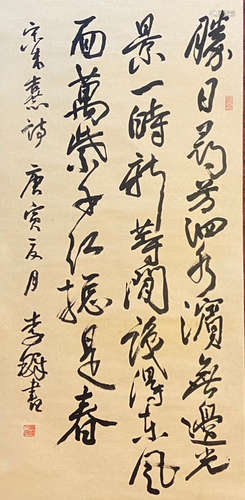 勝日尋芳泗水濱無邊光
景一時新等閒識得東風
面萬紫千紅總是春
宋朱熹詩 庚寅夏月 李鐸書